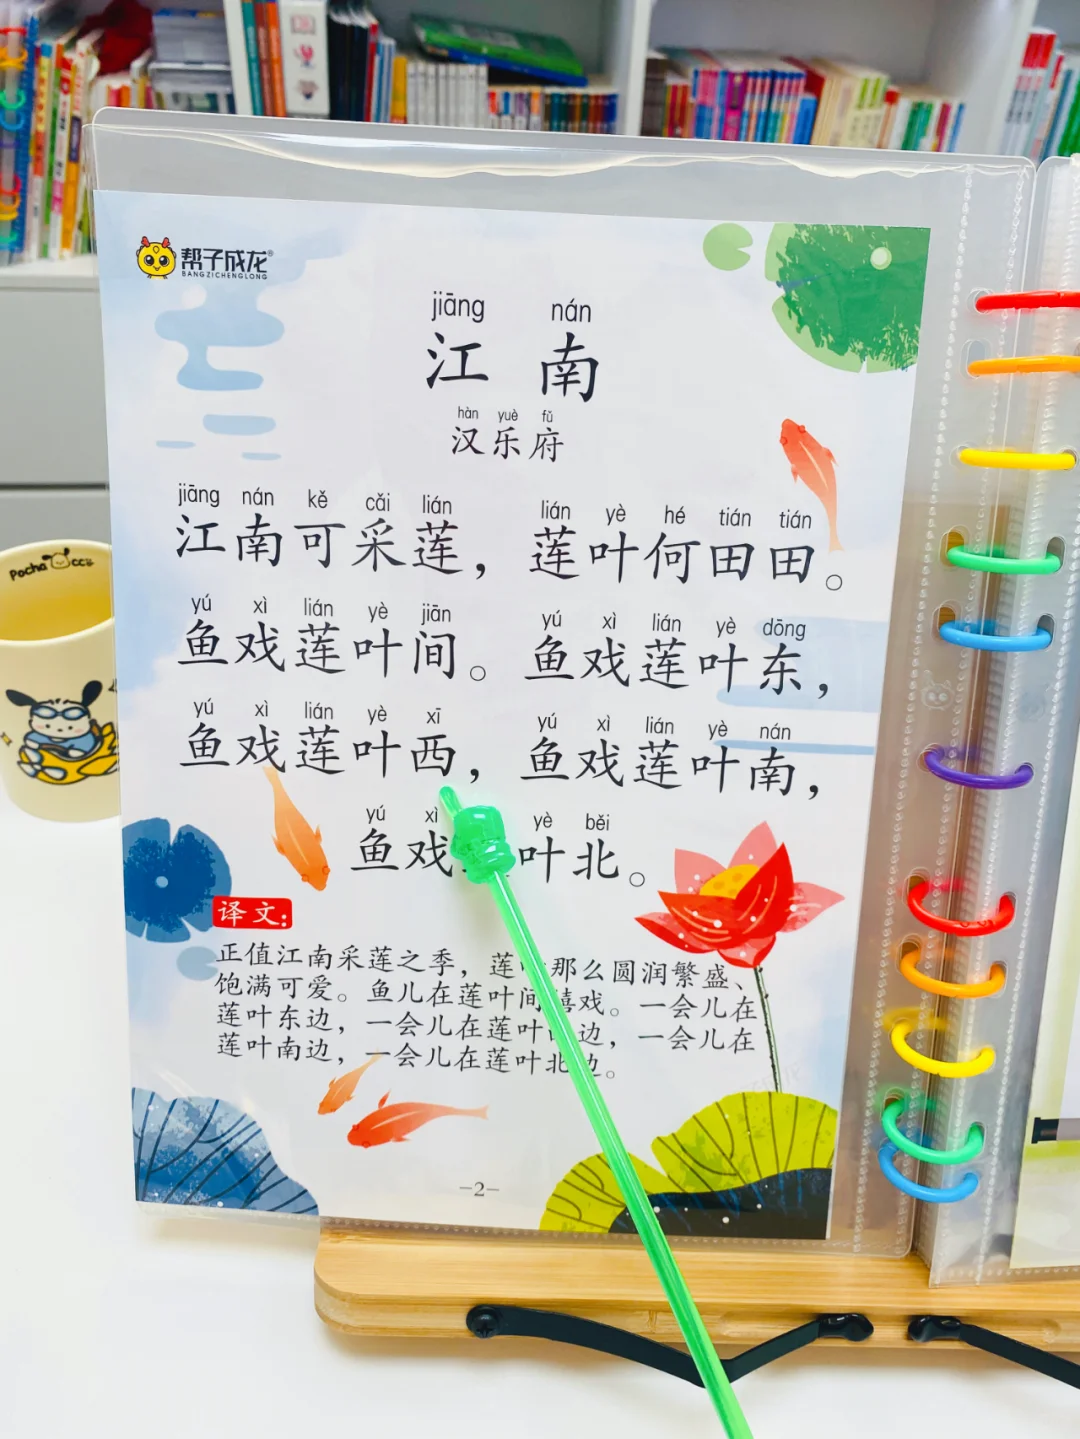 帮子成龙®
BANGZICHENGLONG
jiāng nán
江 南
hàn yuè fǔ
汉乐府
jiāng nán kě cǎi lián lián yè hé tián tián
江南可采莲，莲叶何田田。
yú xì lián yè jiān yú xì lián yè dōng
鱼戏莲叶间。鱼戏莲叶东，
yú xì lián yè xī yú xì lián yè nán
鱼戏莲叶西，鱼戏莲叶南，
yú xì yè běi
鱼戏叶北。
译文：
正值江南采莲之季，莲那么圆润繁盛、
饱满可爱。鱼儿在莲叶间嬉戏。一会儿在
莲叶东边，一会儿在莲叶边，一会儿在
莲叶南边，一会儿在莲叶北边。
-2-
Pochacco